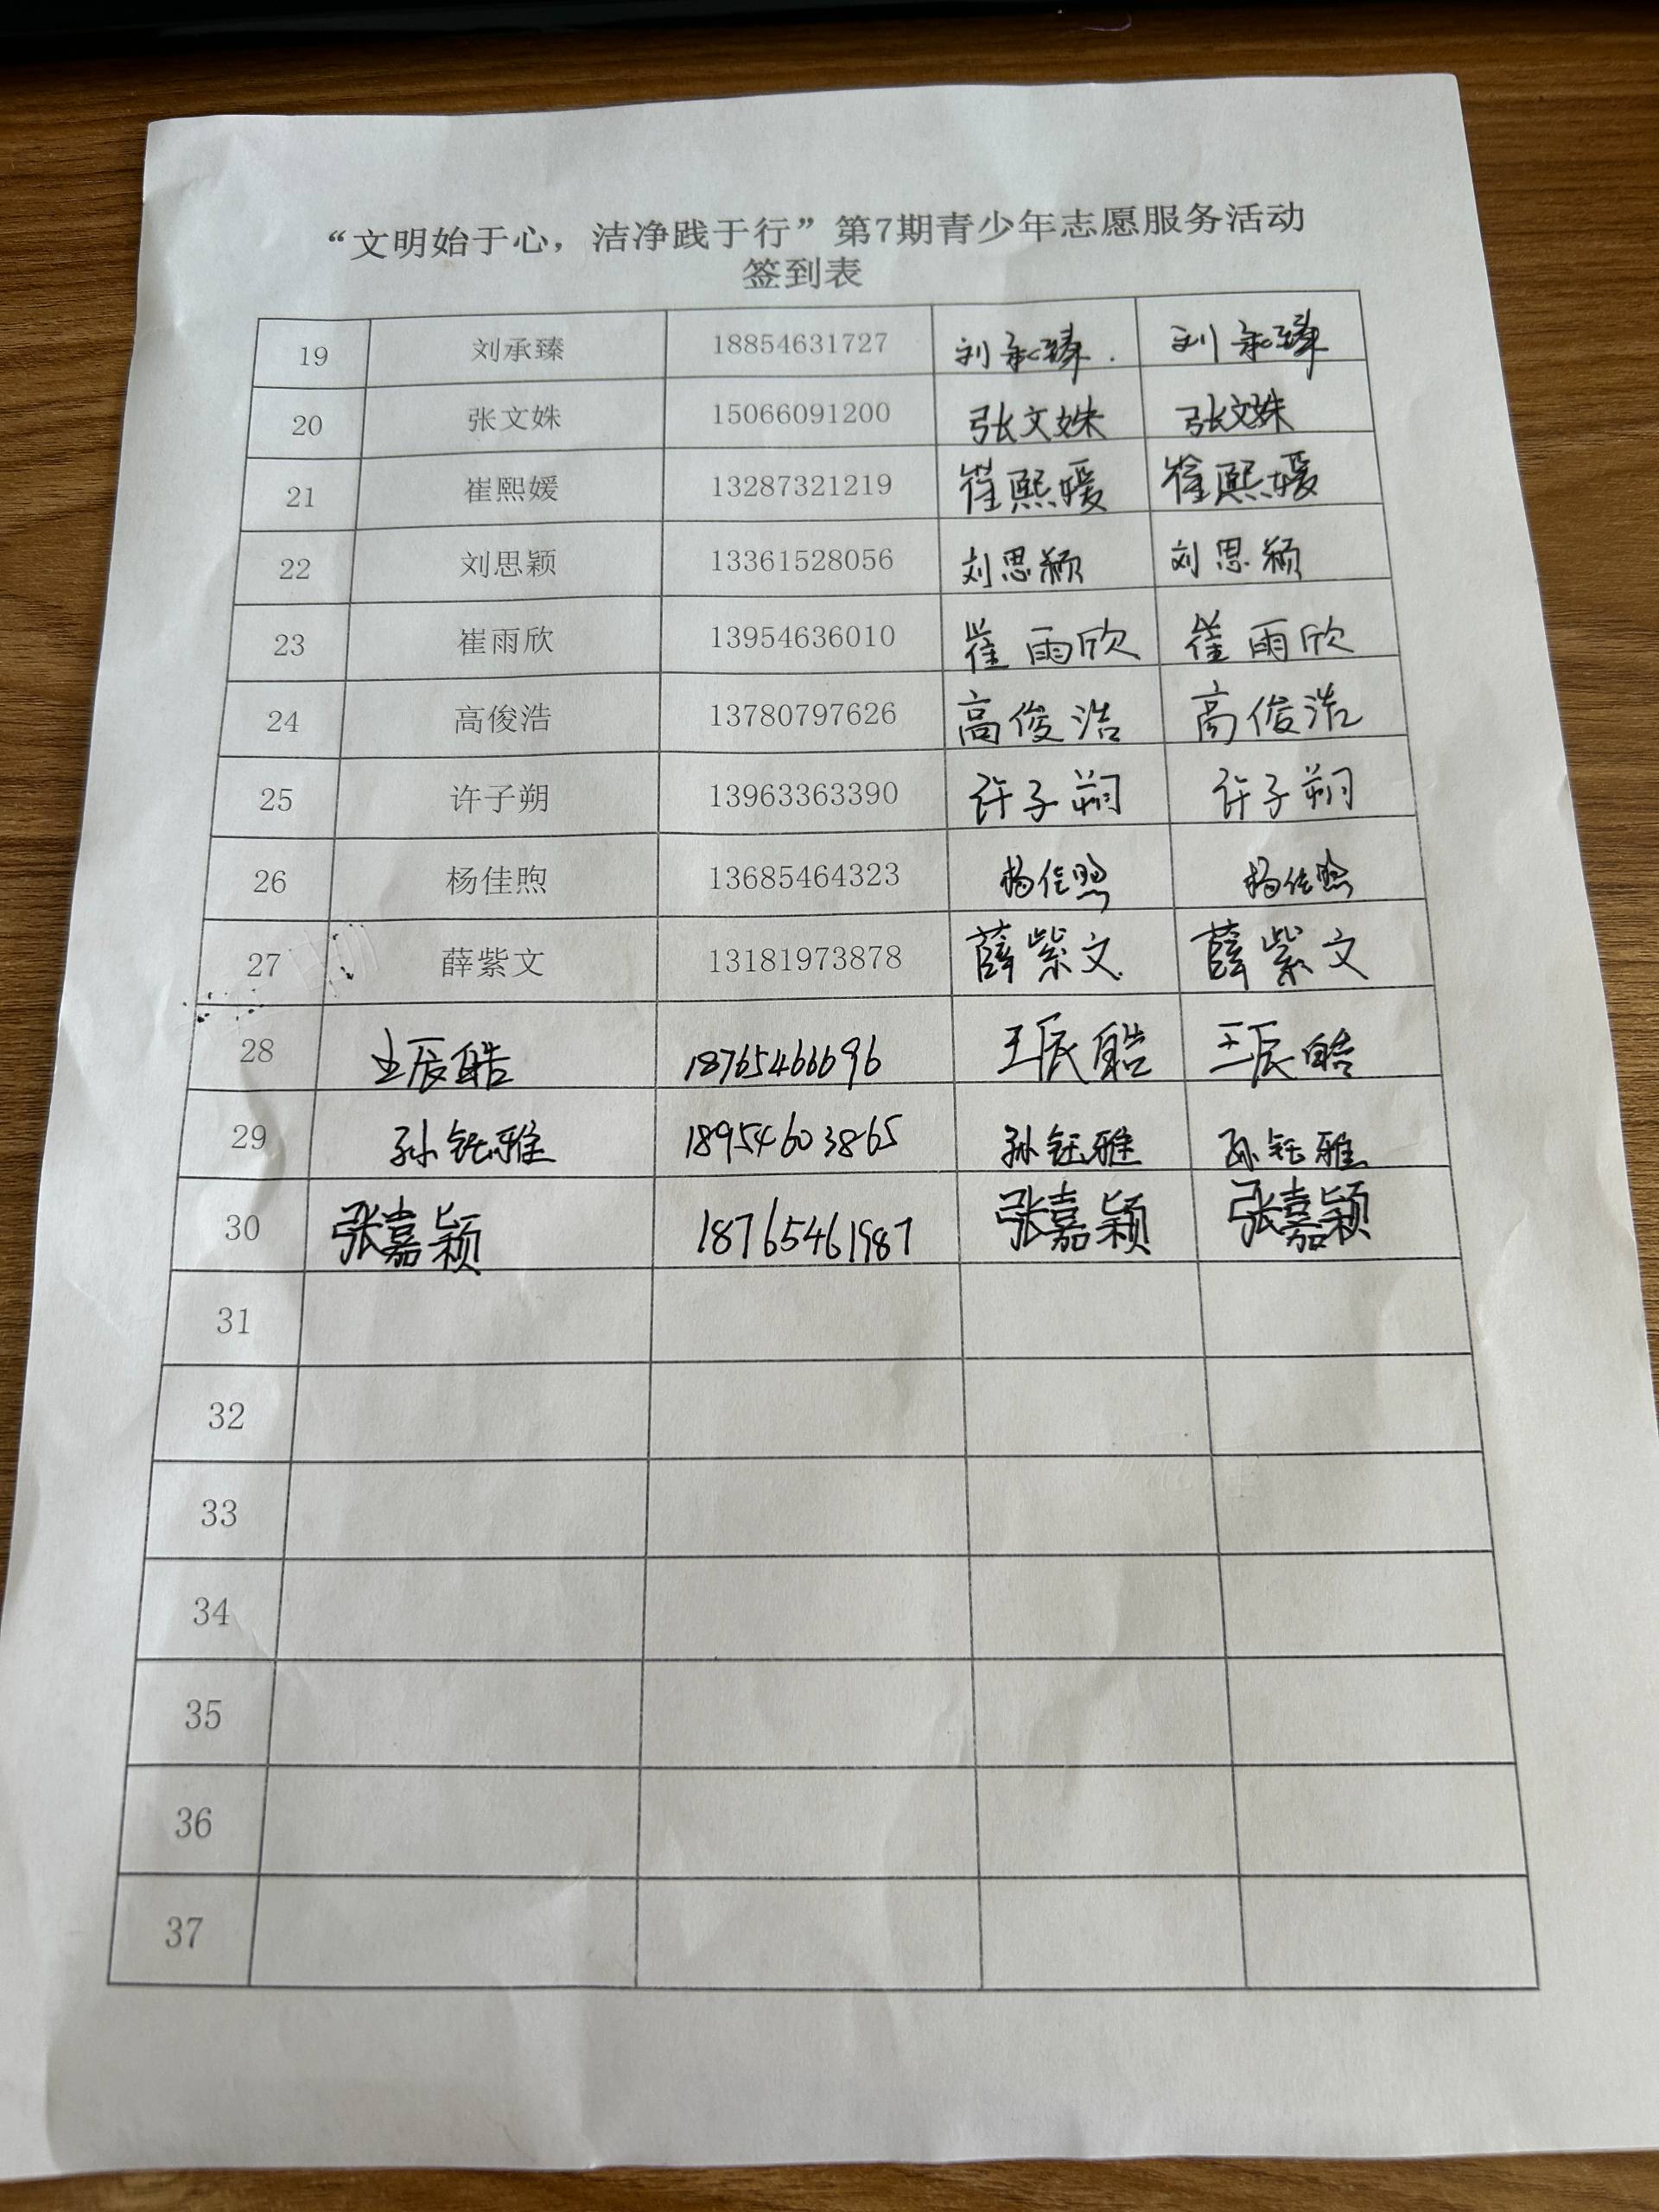 “文明始于心，洁净践于行”第7期青少年志愿服务活动
签到表
19 刘承臻 18854631727 刘承臻. 刘承臻
20 张文姝 15066091200 张文姝 张文姝
21 崔熙媛 13287321219 崔熙媛 崔熙媛
22 刘思颖 13361528056 刘思颖 刘思颖
23 崔雨欣 13954636010 崔雨欣 崔雨欣
24 高俊浩 13780797626 高俊浩 高俊浩
25 许子朔 13963363390 许子朔 许子朔
26 杨佳煦 13685464323 杨佳煦 杨佳煦
27 薛紫文 13181973878 薛紫文 薛紫文
28 王辰皓 18765466696 王辰皓 王辰皓
29 孙钰雅 18954603865 孙钰雅 孙钰雅
30 张嘉颖 18765461987 张嘉颖 张嘉颖
31
32
33
34
35
36
37